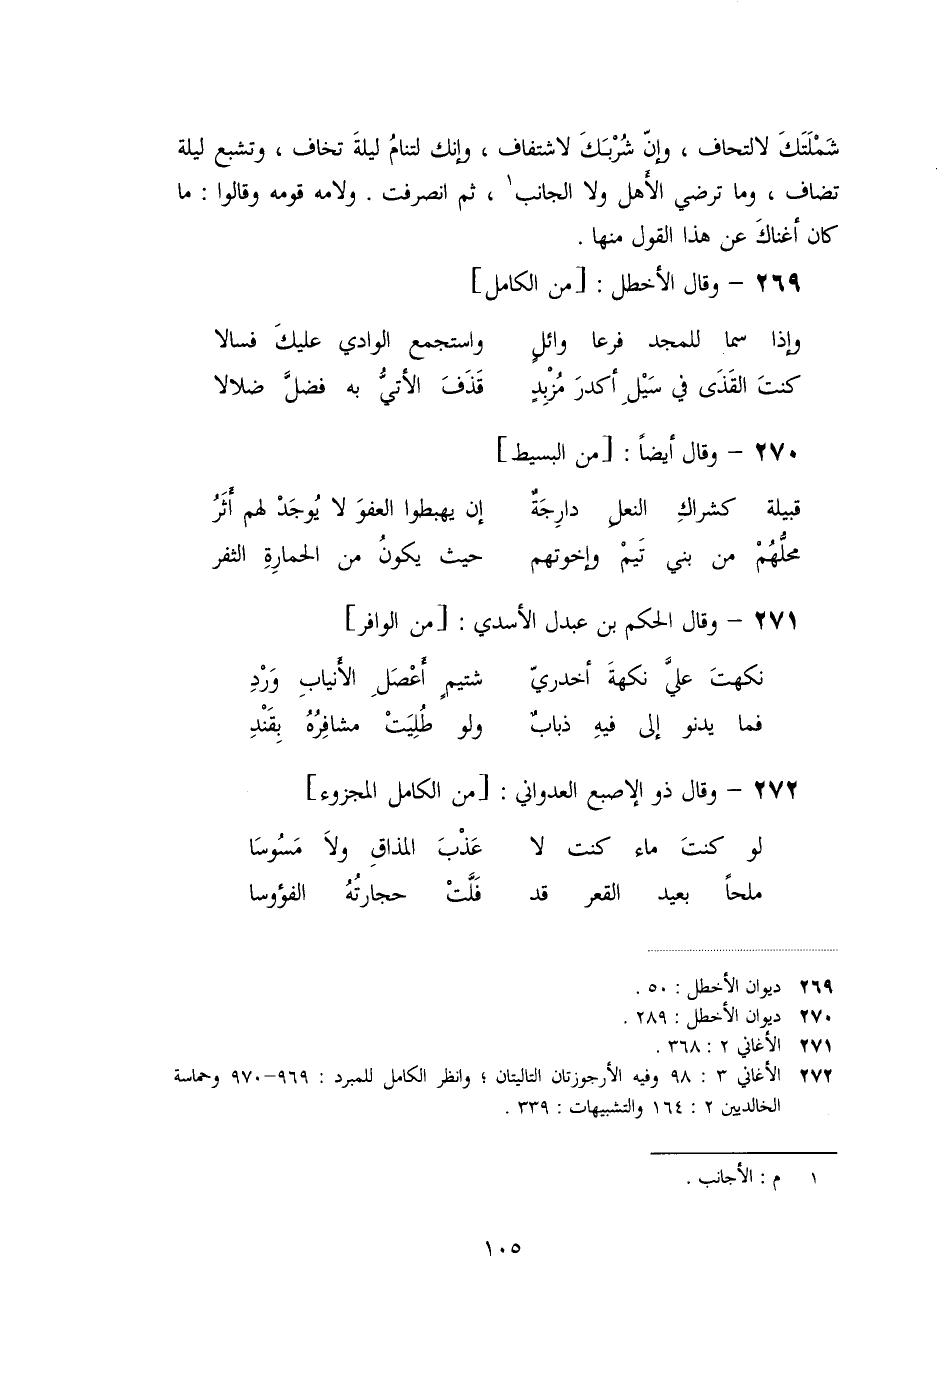 شَمْلَتَكَ لالتحاف ، وإنّ شُرْبَكَ لاشتفاف ، وإنك لتنامُ ليلةَ تخاف ، وتشبع ليلة
تضاف ، وما ترضي الأَهل ولا الجانب١ ، ثم انصرفت . ولامه قومه وقالوا : ما
كان أغناكَ عن هذا القول منها .
٢٦٩ – وقال الأخطل : [من الكامل]
وإذا سما للمجد فرعا وائلٍ واستجمع الوادي عليكَ فسالا
كنتَ القَذَى في سَيْلِ أكدرَ مُزْبِدٍ قَذَفَ الأتيُّ به فضلَّ ضلالا
٢٧٠ – وقال أيضاً : [من البسيط]
قبيلة كشراكِ النعلِ دارِجَةٌ إن يهبطوا العفوَ لا يُوجَدْ لهم أَثَرُ
محلُّهُمْ من بني تَيمْ وإخوتهم حيث يكونُ من الحمارِةِ الثفر
٢٧١ – وقال الحكم بن عبدل الأسدي : [من الوافر]
نكهتَ عليَّ نكهةَ أخدريّ شتيمٍ أَعْصَلِ الأَنيابِ وَرْدِ
فما يدنو إلى فيهِ ذبابٌ ولو طُلِيَتْ مشافِرُهُ بِقَنْدِ
٢٧٢ – وقال ذو الإصبع العدواني : [من الكامل المجزوء]
لو كنتَ ماء كنت لا عَذْبَ المذاقِ ولاَ مَسُوسَا
ملحاً بعيد القعر قد فَلَّتْ حجارتُهُ الفؤوسا
٢٦٩ ديوان الأخطل : ٥٠ .
٢٧٠ ديوان الأخطل : ٢٨٩ .
٢٧١ الأغاني ٢ : ٣٦٨ .
٢٧٢ الأغاني ٣ : ٩٨ وفيه الأرجوزتان التاليتان ؛ وانظر الكامل للمبرد : ٩٦٩–٩٧٠ وحماسة
الخالديين ٢ : ١٦٤ والتشبيهات : ٣٣٩ .
١ م : الأجانب .
١٠٥